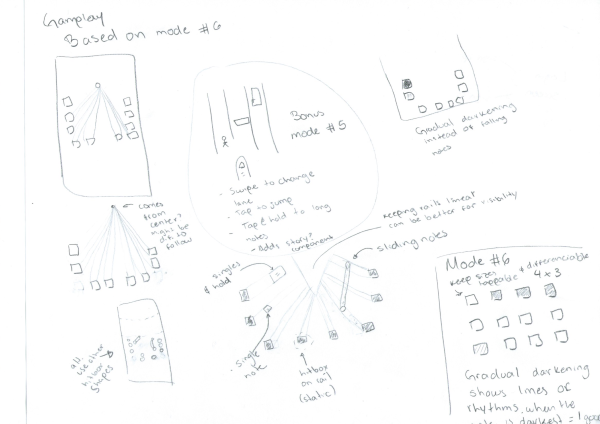 Gameplay
Based on mode #6
Bonus
mode #5
- Swipe to change
lane
- Tap to jump
- Tap & hold to long
notes
- Adds story?
components
Gradual darkening
instead of falling
notes
comes
from
center?
might be
diff. to
follow
keeping rails linear
can be better for visibility
sliding notes
singles
& hold
- Single
note
hitbox
on rail
(static)
alt.
use other
hitbox
shapes
Mode #6
keep sizes
tappable & differenciable
4 x 3
Gradual darkening
shows lines of
rhythms, when the
is darkest =